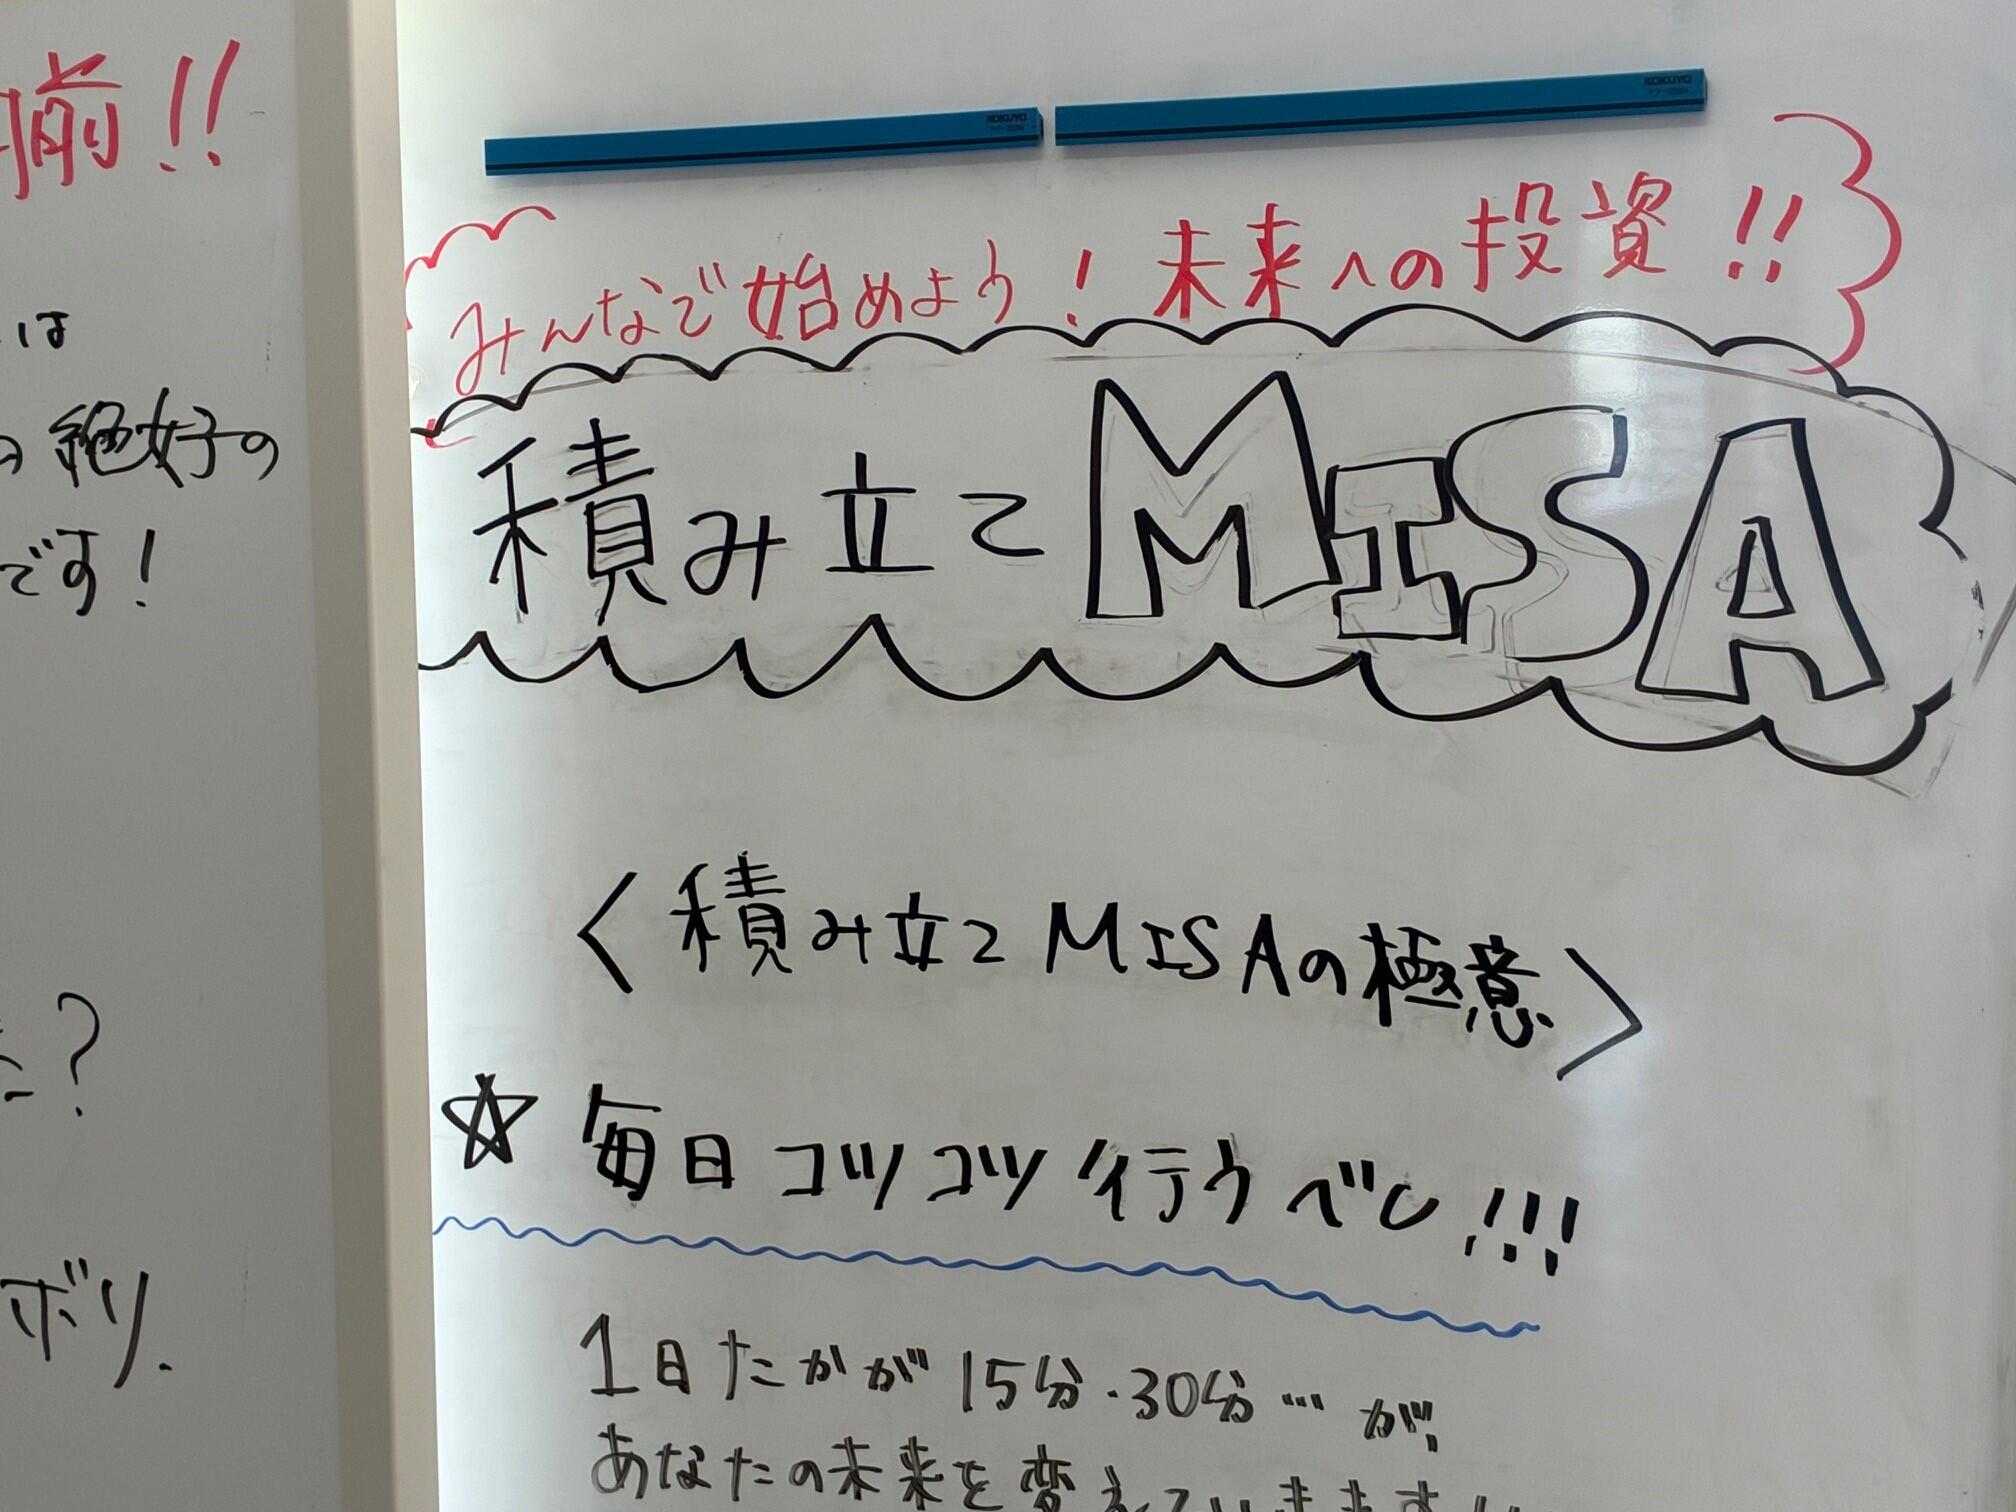 前!!
は
絶好の
です!
?
ボリ.
KOKUYO
KOKUYO
みんなで始めよう!未来への投資!!
積み立てMISA
<積み立てMISAの極意>
☆ 毎日コツコツ行うべし!!!
1日たかが15分・30分…が、
あなたの未来を変えていきます!!